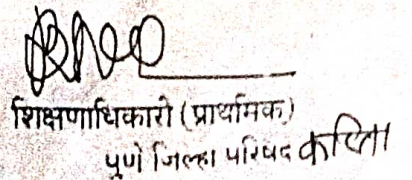 शिक्षणाधिकारी (प्राथमिक)
पुणे जिल्हा परिषद करिता